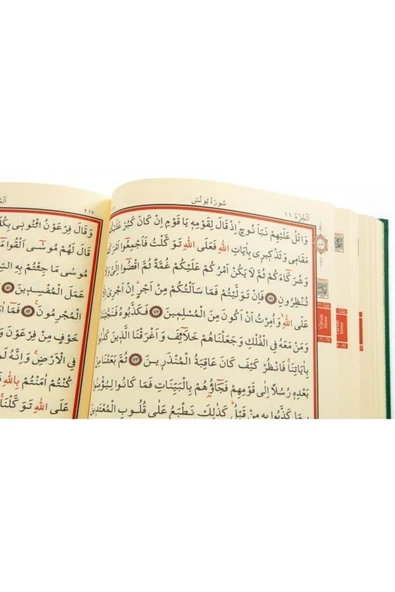 سُورَةُ يُونُسَ
اَلْجُزْءُ ١١
وَاتْلُ عَلَيْهِمْ نَبَاَ نُوحٍ اِذْ قَالَ لِقَوْمِه۪ يَا قَوْمِ اِنْ كَانَ كَبُرَ عَلَيْكُمْ
مَقَام۪ي وَتَذْك۪ير۪ي بِاٰيَاتِ اللّٰهِ فَعَلَى اللّٰهِ تَوَكَّلْتُ فَاَجْمِعُٓوا
وَشُرَكَٓاءَكُمْ ثُمَّ لَا يَكُنْ اَمْرُكُمْ عَلَيْكُمْ غُمَّةً ثُمَّ اقْضُٓوا اِلَيَّ
تُنْظِرُونِ ٧١ فَاِنْ تَوَلَّيْتُمْ فَمَا سَاَلْتُكُمْ مِنْ اَجْرٍ اِنْ اَجْرِيَ اِلَّا
عَلَى اللّٰهِ وَاُمِرْتُ اَنْ اَكُونَ مِنَ الْمُسْلِم۪ينَ ٧٢ فَكَذَّبُوهُ
وَمَنْ مَعَهُ فِي الْفُلْكِ وَجَعَلْنَاهُمْ خَلَٓائِفَ وَاَغْرَقْنَا الَّذ۪ينَ
بِاٰيَاتِنَا فَانْظُرْ كَيْفَ كَانَ عَاقِبَةُ الْمُنْذَر۪ينَ ٧٣ ثُمَّ بَعَثْنَا
بَعْدِه۪ رُسُلًا اِلٰى قَوْمِهِمْ فَجَٓاؤُ۫هُمْ بِالْبَيِّنَاتِ فَمَا كَانُوا لِيُؤْمِنُوا
بِمَا كَذَّبُوا بِه۪ مِنْ قَبْلُ كَذٰلِكَ نَطْبَعُ عَلٰى قُلُوبِ الْمُعْتَد۪ينَ
٢١٧
وَقَالَ فِرْعَوْنُ ائْتُون۪ي بِكُلِّ
قَالَ لَهُمْ مُوسٰٓى اَلْقُوا
مُوسٰى مَا جِئْتُمْ بِهِ
عَمَلَ الْمُفْسِد۪ينَ ٨١
الْمُجْرِمُونَ ٨٢
خَوْفٍ مِنْ فِرْعَوْنَ
فِي الْاَرْضِ وَاِنَّهُ
كُنْتُمْ اٰمَنْتُمْ بِاللّٰهِ
عَلَى اللّٰهِ تَوَكَّلْنَا